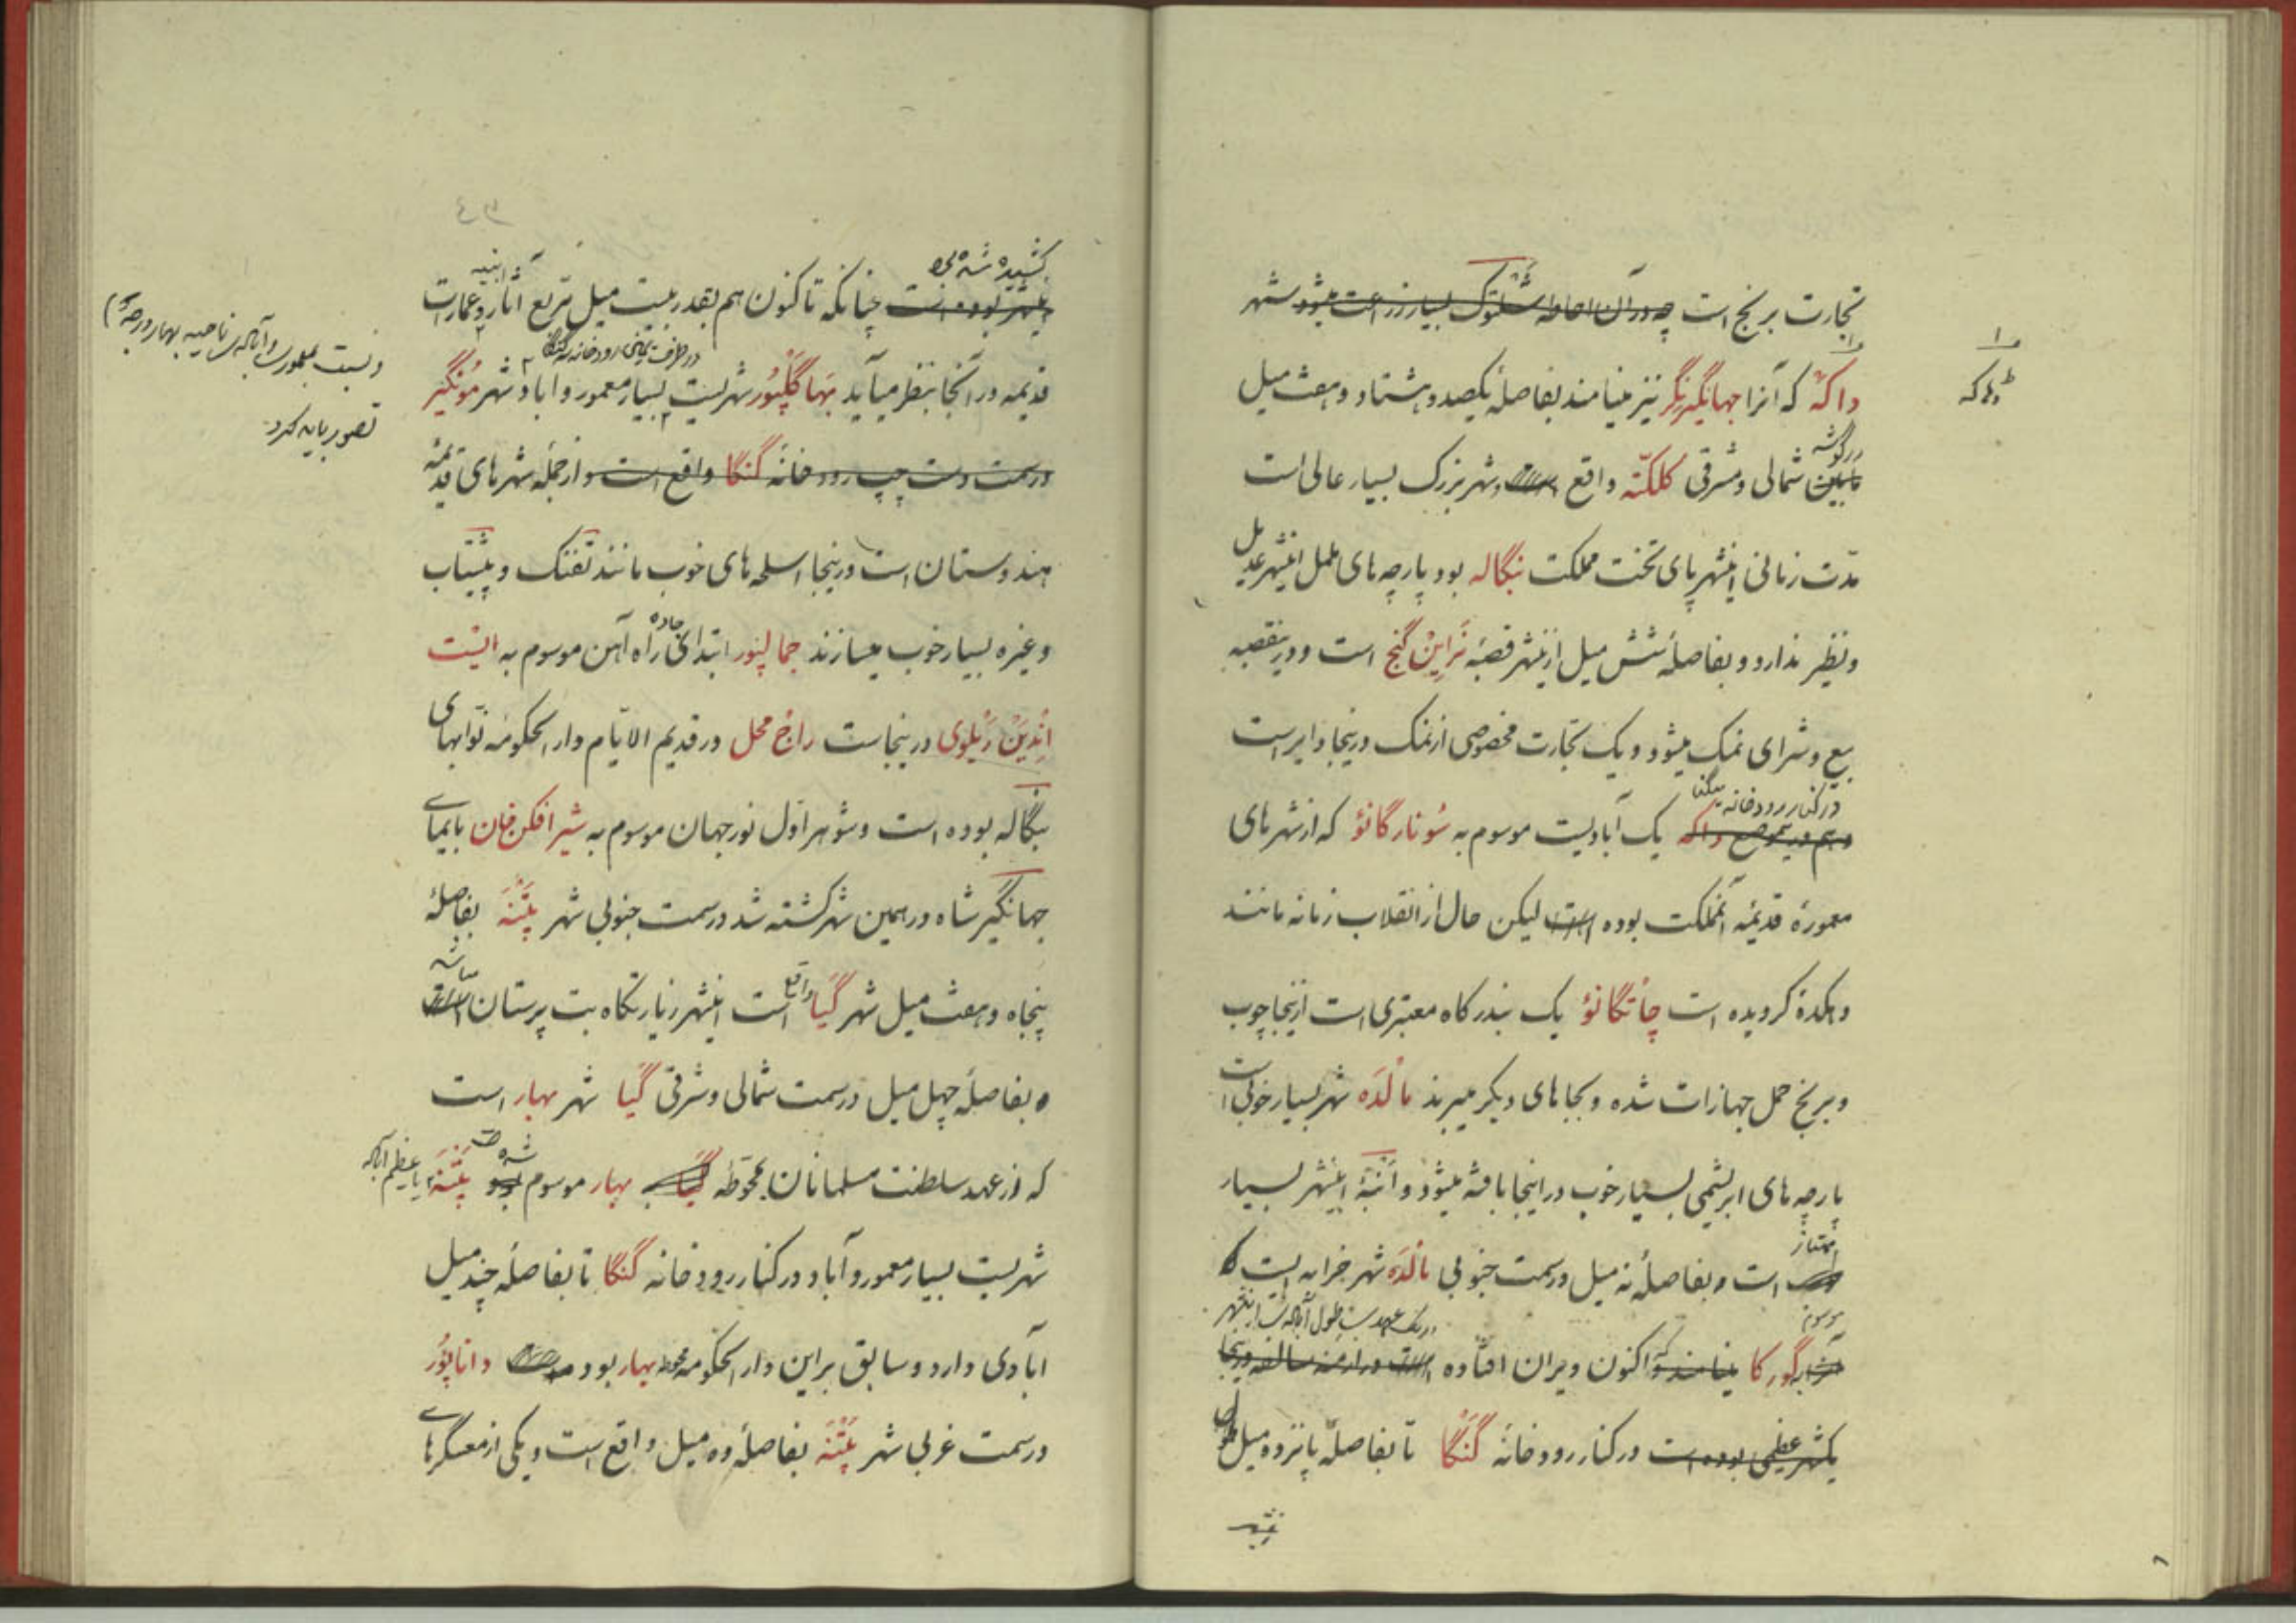 تجارت برنج است چه در آن احاطه شلتوک بسیار زراعت میشود شهر
داکّه که آنرا جهانگیرنگر نیز مینامند بفاصلهٔ یکصد و هشتاد و هفت میل
در گوشه
مابین شمالی و مشرقی کلکتّه واقع است و شهر بزرگ بسیار عالی است
مدّت زمانی اینشهر پای تخت مملکت بنگاله بود پارچه های ململ اینشهر عدیل
و نظیر ندارد و بفاصلهٔ شش میل ازینشهر قصبهٔ نَرایِنْ گنج است و درینقصبه
بیع و شرای نمک میشود و یک تجارت مخصوصی از نمک درینجا دایر است
در کنار رودخانه
و هم در موضع داکه یک آبادیست موسوم به سُونارگانؤ که از شهرهای
معمورهٔ قدیمهٔ آنمملکت بوده است لیکن حال از انقلاب زمانه مانند
دهکدهٔ گردیده است چاتگانؤ یک بندرگاه معتبری است ازینجا چوب
و برنج حمل جهازات شده و بجاهای دیگر میبرند مالْدَه شهر بسیار خوبی است
پارچه های ابریشمی بسیار خوب در اینجا بافته میشود و انبهٔ اینشهر بسیار
ممتاز
است و بفاصلهٔ نه میل در سمت جنوبی مالْدَه شهر خرابه ایست که
موسوم
گور کا مینامند که اکنون ویران افتاده است در ازمنه سالفه درینجا
یکشهر عظیمی بوده است در کنار رودخانهٔ گَنْگا تا بفاصلهٔ پانزده میل طول
داکه
کشیده شده بود
اینشهر بوده است چنانکه تا کنون هم بقدر بیست میل مربع آثار و عمارات
ابنیه
در طرف یمین رودخانه گنگا
قدیمه در آنجا بنظر میآید بَهاگَلْپُور شهریست بسیار معمور و آباد شهر مُونگیر
در سمت دست چپ رودخانهٔ گنگا واقع است و از جمله شهرهای قدیمهٔ
هندوستان است درینجا اسلحه های خوب مانند تفنگ و پیشتاب
و غیره بسیار خوب میسازند جمالپور ابتدای جاده راه آهن موسوم به ایست
اِنْدِیَنْ رَیْلوی درینجاست راج محل در قدیم الایّام دار الحکومه نوّابهای
بنگاله بوده است و شوهر اوّل نورجهان موسوم به شیر افکن خان بایمای
جهانگیر شاه در همین شهر کشته شد در سمت جنوبی شهر پَتْنَه بفاصلهٔ
پنجاه و هفت میل شهر گَیا واقع است اینشهر زیارتگاه بت پرستان میباشد
و بفاصلهٔ چهل میل در سمت شمالی و شرقی گَیا شهر بهار است
که از عهد سلطنت مسلمانان محوطهٔ گیا به بهار موسوم شده است پَتْنَه یا عظیم آباد
شهریست بسیار معمور و آباد در کنار رودخانه گَنگا تا بفاصلهٔ چند میل
آبادی دارد و سابق براین دار الحکومه محوطه بهار بود داناپُور
در سمت غربی شهر پَتْنَه بفاصلهٔ ده میل واقع است و یکی از معسکرهای
و نسبت بمعموری و آبادی ناحیه بهار
تصور باید کرد